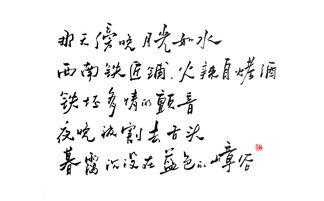 那天傍晚月光如水
西南铁匠铺,火辣自烤酒
铁坯多情的颤音
夜晚被割去舌头
暮霭沉没在蓝色的嶂谷